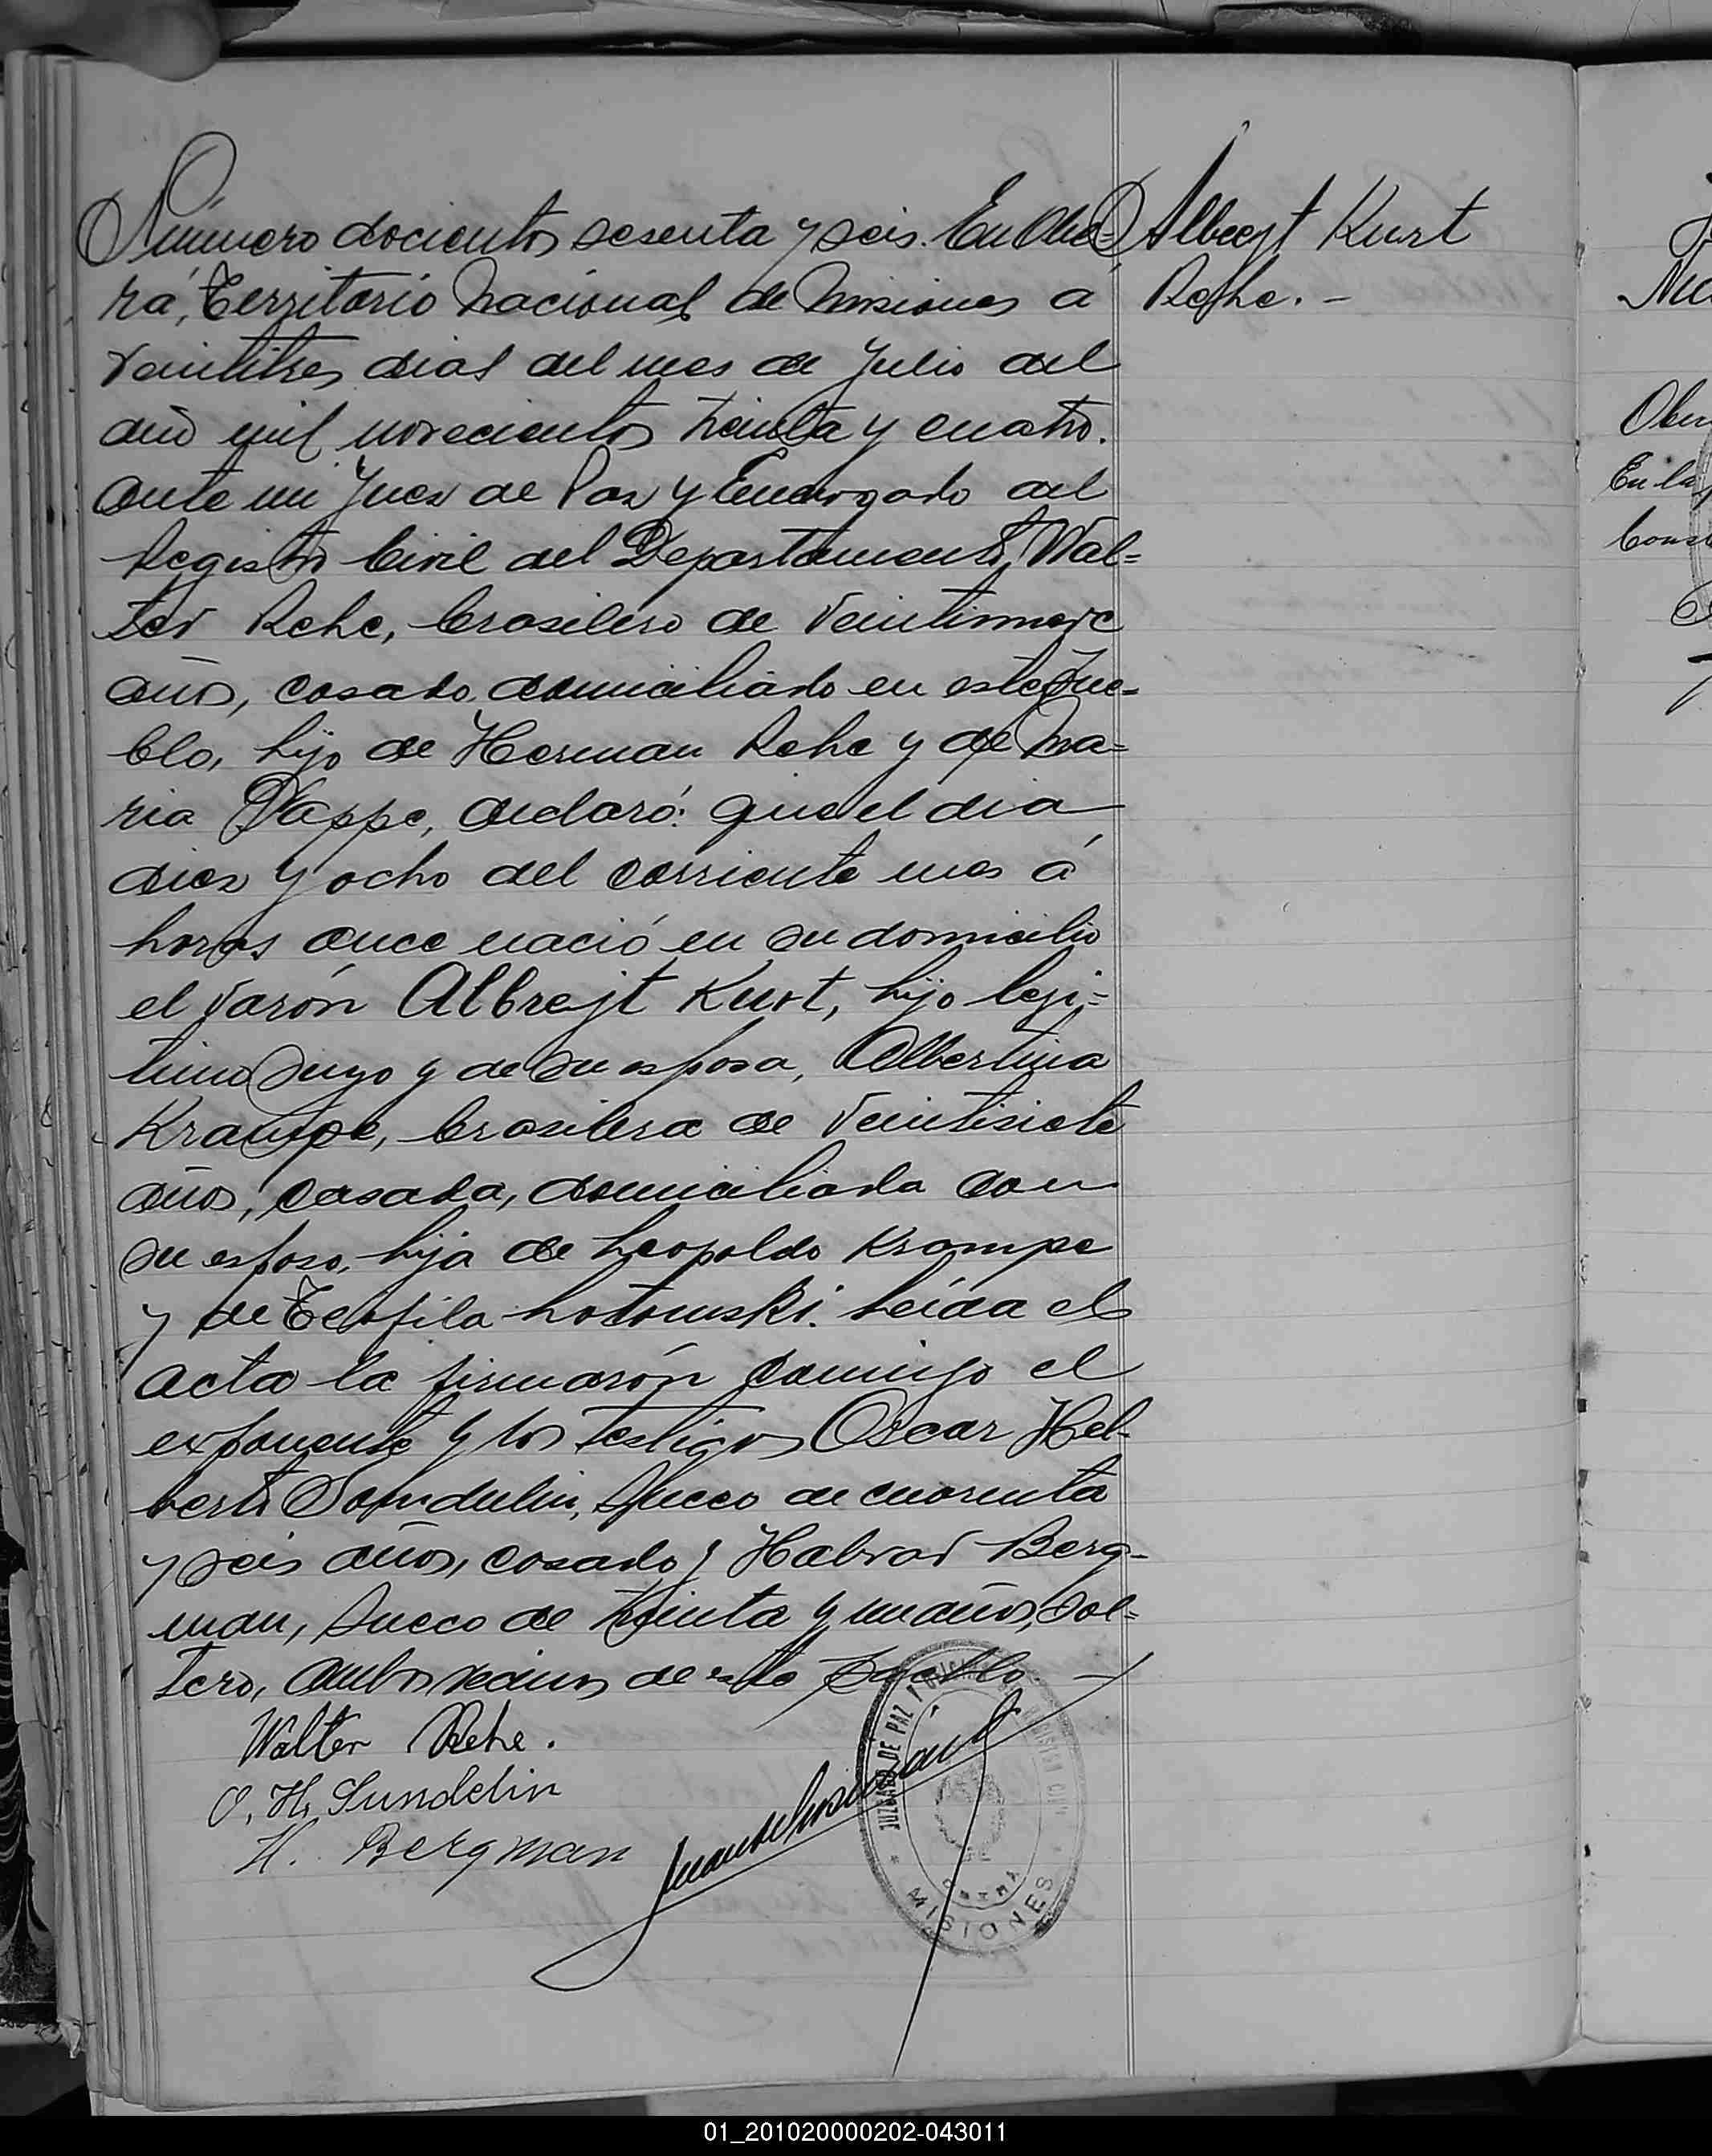 Número docientos sesenta y seis. En Obe=
rá, Territorio Nacional de Misiones a
veintitres dias del mes de Julio del
año mil novecientos treinta y cuatro.
ante mi Juez de Paz y Encargado del
Registro Civil del Departamento, Wal=
ter Rehe, brasilero de veintinueve
años, casado, domiciliado en este Pue=
blo, hijo de Herman Rehe y de Ma=
ria Pappe, declaró: que el dia
diez y ocho del corriente mes á
horas once nació en su domicilio
el varón Albrejt Kurt, hijo legi=
timo suyo y de su esposa, Albertina
Krampe, brasilera de veintisiete
años, casada, domiciliada con
su esposo, hija de Leopoldo Krampe
y de Teofila Lotowski. Leída el
acta la firmarón conmigo el
exponente y los testigos Oscar Hel-
berto Sundelin, Sueco de cuarenta
y seis años, casado y Halvar Berg-
man, Sueco de treinta y un años, sol=
tero, ambos vecinos de este pueblo. —
Albrejt Kurt
Rehe. -
Walter Rehe.
O. H. Sundelin
H. Bergman
JUZGADO DE PAZ Y
REGISTRO CIVIL
OBERA
MISIONES
En la
01_201020000202-043011